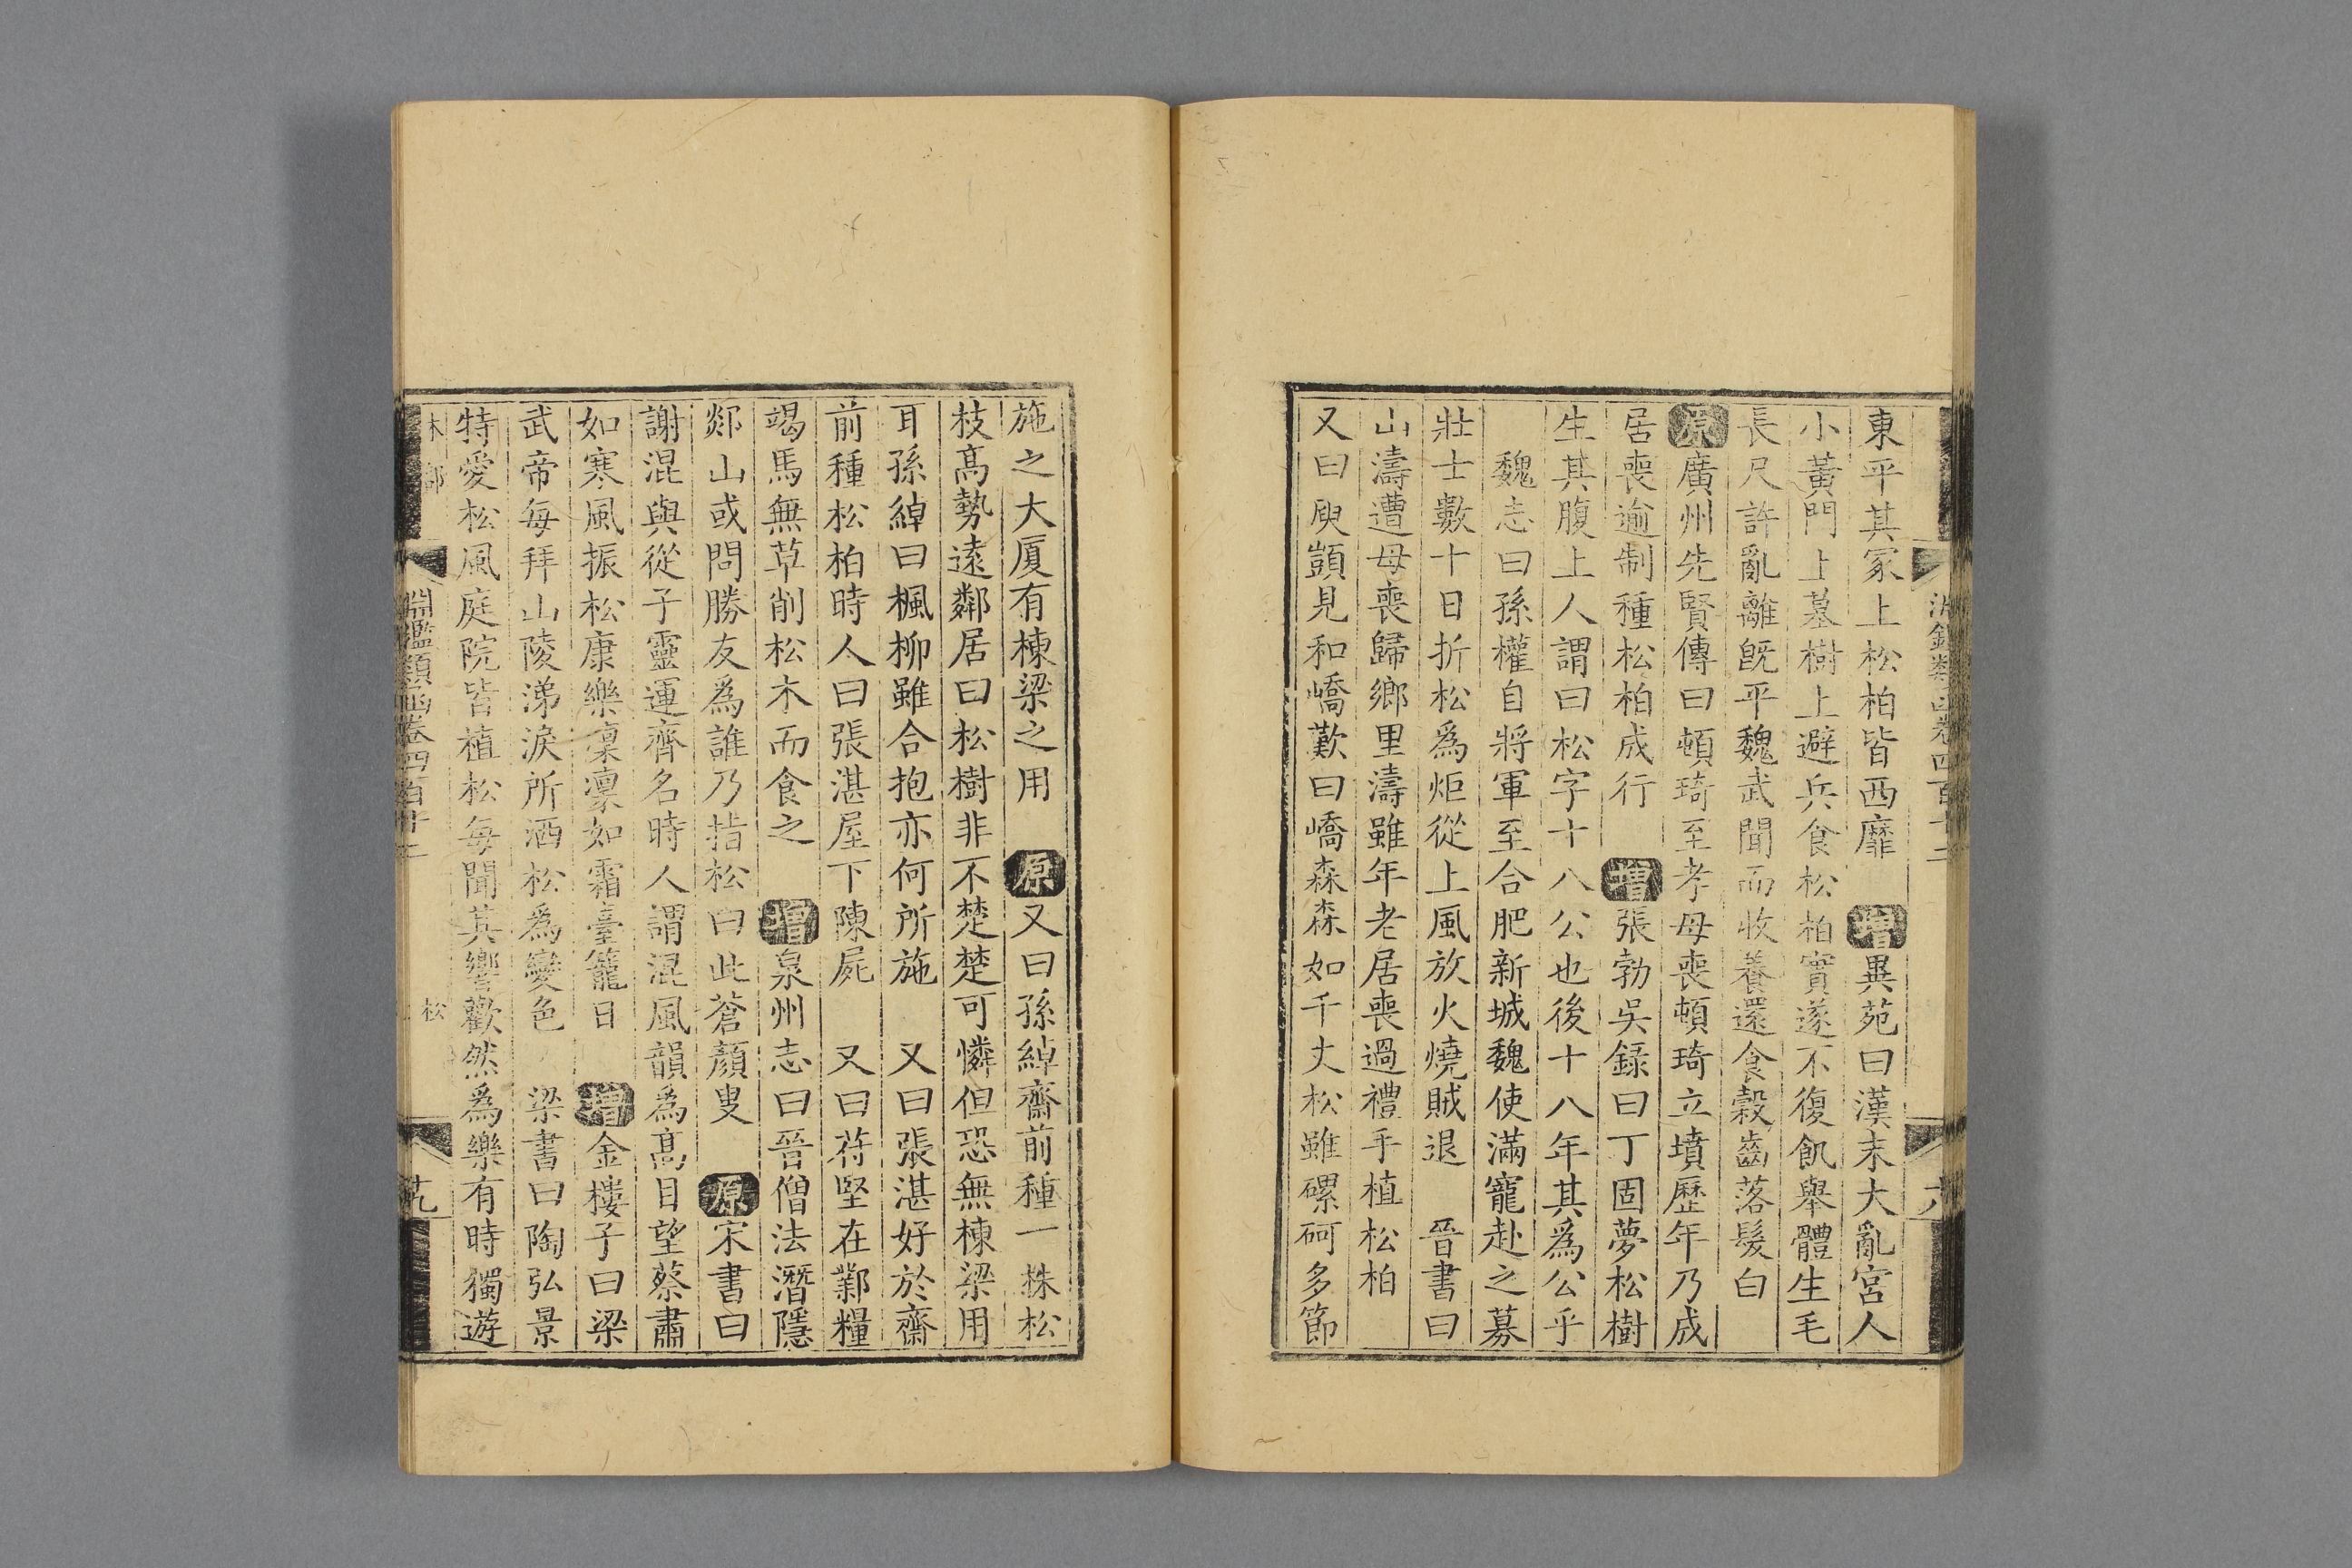 東平其冢上松柏皆西靡 增異苑曰漢末大亂宮人
小黃門上墓樹上避兵食松柏實遂不復飢舉體生毛
長尺許亂離既平魏武聞而收養還食穀齒落髮白
原廣州先賢傳曰頓琦至孝母喪頓琦立墳歷年乃成
居喪逾制種松柏成行 增張勃吳録曰丁固夢松樹
生其腹上人謂曰松字十八公也後十八年其爲公乎
魏志曰孫權自將軍至合肥新城魏使滿寵赴之募
壯士數十日折松爲炬從上風放火燒賊退 晉書曰
山濤遭母喪歸鄉里濤雖年老居喪過禮手植松柏
又曰庾顗見和嶠歎曰嶠森森如千丈松雖磥砢多節
施之大厦有棟梁之用 原又曰孫綽齋前種一株松
枝髙勢遠鄰居曰松樹非不楚楚可憐但恐無棟梁用
耳孫綽曰楓柳雖合抱亦何所施 又曰張湛好於齋
前種松柏時人曰張湛屋下陳屍 又曰苻堅在鄴糧
竭馬無草削松木而食之 增泉州志曰晉僧法潛隱
郯山或問勝友爲誰乃指松曰此蒼顏叟 原宋書曰
謝混與從子靈運齊名時人謂混風韻爲髙目望蔡肅
如寒風振松康樂凜凜如霜臺籠日 增金樓子曰梁
武帝每拜山陵涕淚所洒松爲變色 梁書曰陶弘景
特愛松風庭院皆植松每聞其響歡然爲樂有時獨遊
淵鑑類函卷四百十二
松